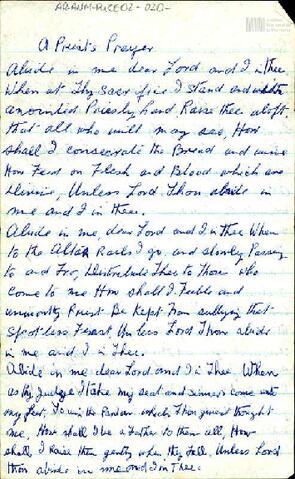 A Priest's Prayer
Abide in me dear Lord and I in thee
When at Thy sacrifice I stand and with
anointed Priestly hand Raise thee aloft
that all who will may see, How
shall I consecrate the Bread and wine
How Feed on Flesh and Blood which are
Divine, Unless Lord Thou abide in
me and I in thee.
Abide in me dear Lord and I in Thee When
to the Altar Rails I go, and slowly Passing
to and Fro, Distribute Thee to those who
come to me How shall I Feeble and
unworthy Priest Be Kept From sullying that
spotless Feast, Unless Lord Thou abide
in me and I in Thee.
Abide in me dear Lord and I in Thee. When
as thy Judge I take my seat and sinners come unto
my feet To win the Pardon which Thou gavest through
me, How shall I be a Father to them all, How
shall I Raise them gently when they Fall, Unless Lord
thou abide in me and I in Thee.